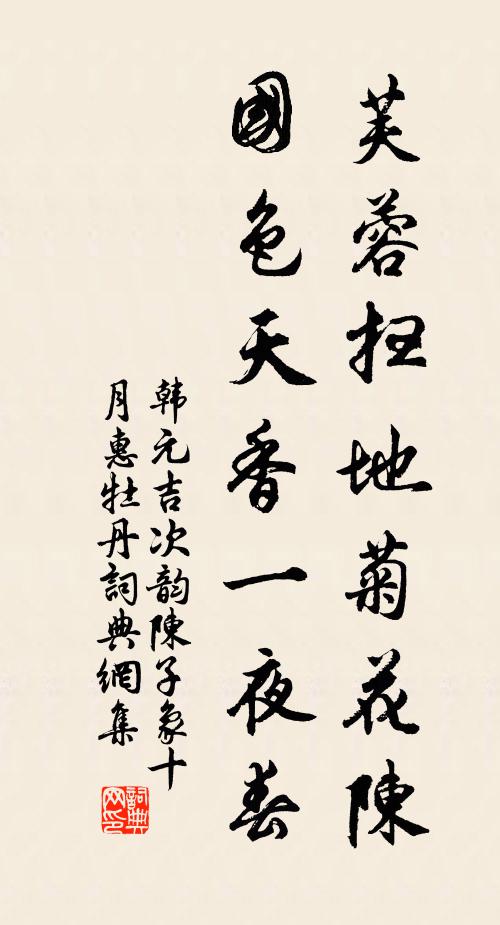 芙蓉扫地菊花陳
國色天香一夜春
韩元吉次韵陳子象十
月惠牡丹詞典網集
詞典
网印